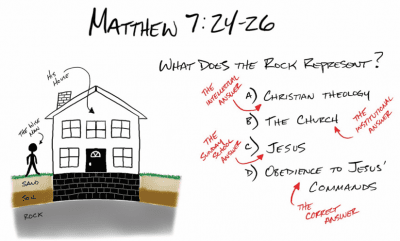 MATTHEW 7:24-26
HIS HOUSE
THE WISE MAN
SAND
SOIL
ROCK
WHAT DOES THE ROCK REPRESENT?
THE INTELLECTUAL ANSWER
A) CHRISTIAN THEOLOGY
B) THE CHURCH
THE INSTITUTIONAL ANSWER
THE SUNDAY SCHOOL ANSWER
C) JESUS
D) OBEDIENCE TO JESUS'
COMMANDS
THE CORRECT ANSWER